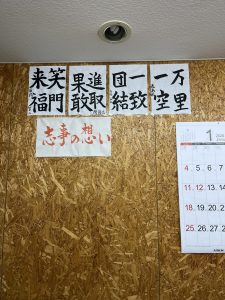 万里
一空
一致
団結
進取
果敢
笑門
来福
志事の想い
1
4 5 6
11 12 13
18 19 20
25 26 27